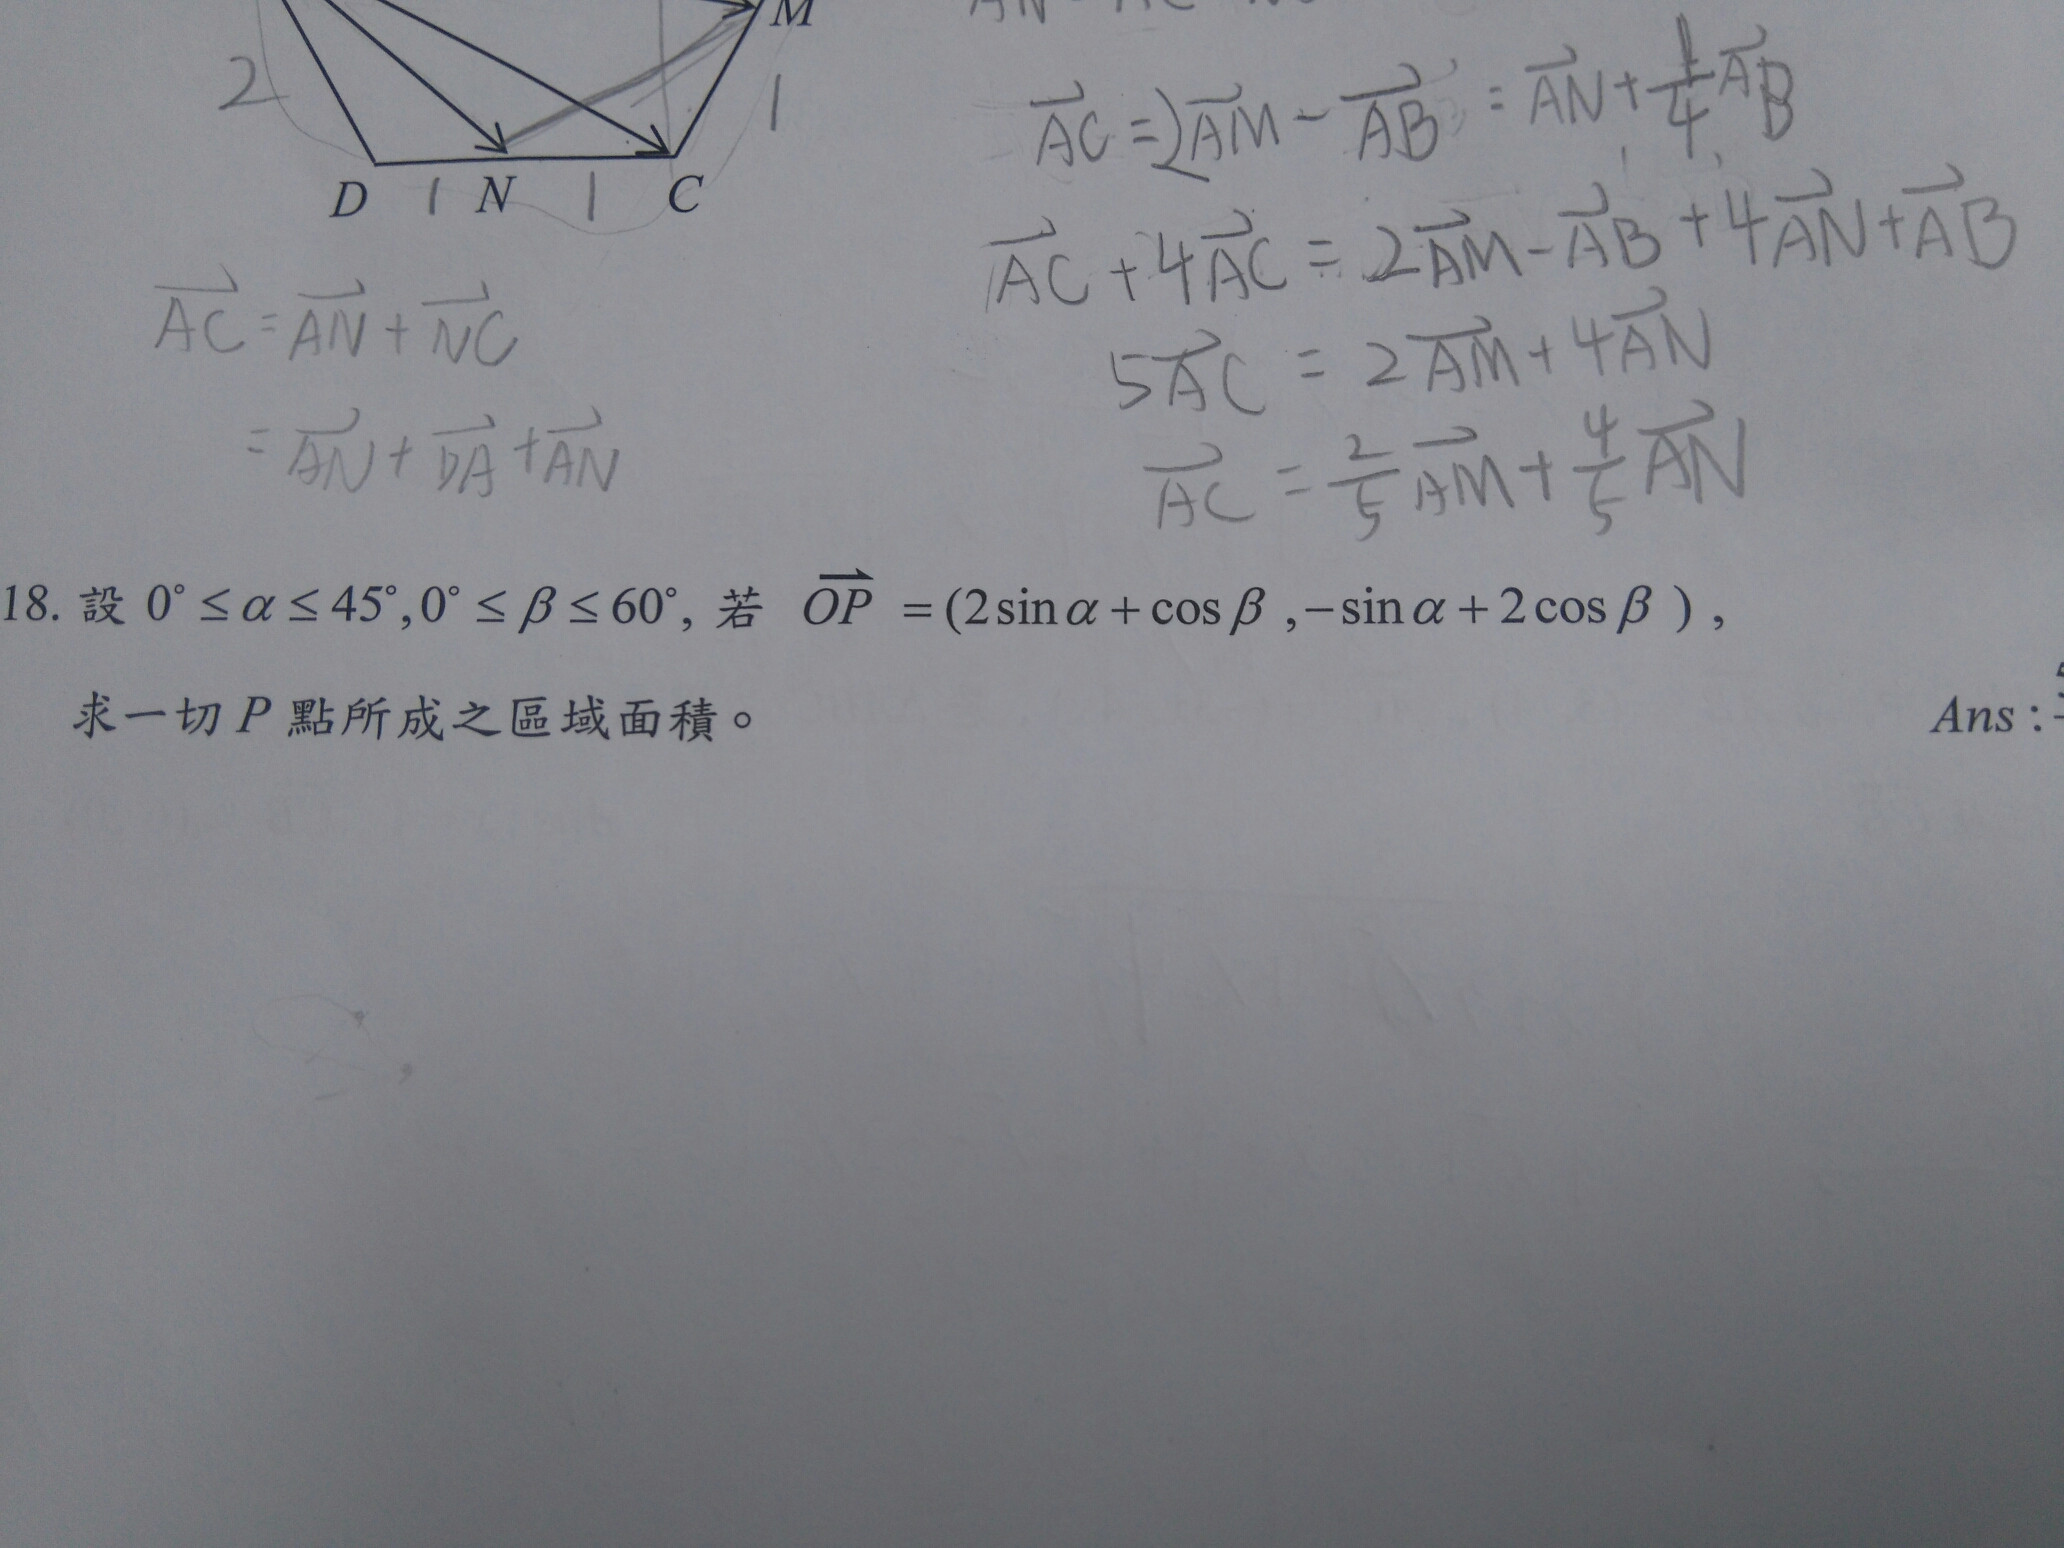 M
$\overrightarrow{AC} = 2\overrightarrow{AM} - \overrightarrow{AB} = \overrightarrow{AN} + \frac{1}{4}\overrightarrow{AB}$
2
1
D 1 N 1 C
$\overrightarrow{AC} + 4\overrightarrow{AC} = 2\overrightarrow{AM} - \overrightarrow{AB} + 4\overrightarrow{AN} + \overrightarrow{AB}$
$\overrightarrow{AC} = \overrightarrow{AN} + \overrightarrow{NC}$
$5\overrightarrow{AC} = 2\overrightarrow{AM} + 4\overrightarrow{AN}$
$= \overrightarrow{AN} + \overrightarrow{DA} + \overrightarrow{AN}$
$\overrightarrow{AC} = \frac{2}{5}\overrightarrow{AM} + \frac{4}{5}\overrightarrow{AN}$
18. 設 $0^\circ \le \alpha \le 45^\circ, 0^\circ \le \beta \le 60^\circ$, 若 $\overrightarrow{OP} = (2\sin\alpha + \cos\beta, -\sin\alpha + 2\cos\beta)$,
求一切 P 點所成之區域面積。 Ans :